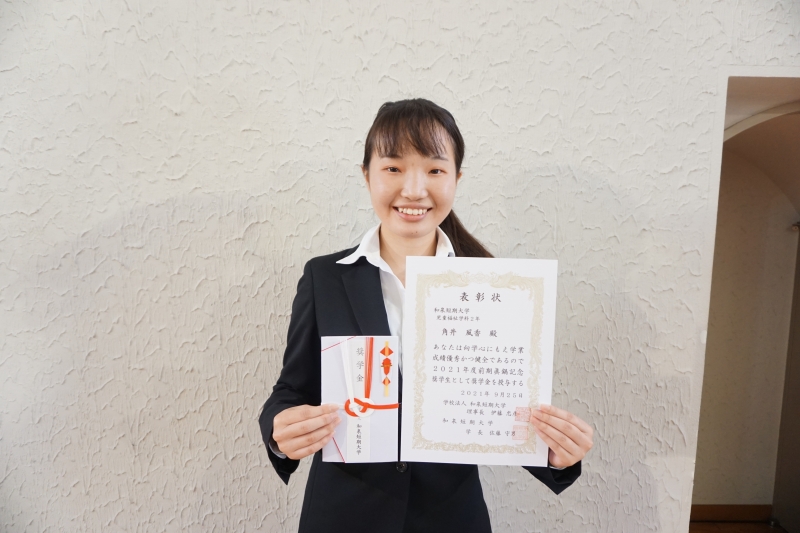 奨学金
和泉短期大学
表彰状
和泉短期大学
児童福祉学科2年
角井 風香 殿
あなたは向学心にもえ学業
成績優秀かつ健全であるので
2021年度前期奥鍋記念
奨学生として奨学金を授与する
2021年9月25日
学校法人 和泉短期大学
理事長 伊藤 忠
和泉短期大学
学長 佐藤 守男